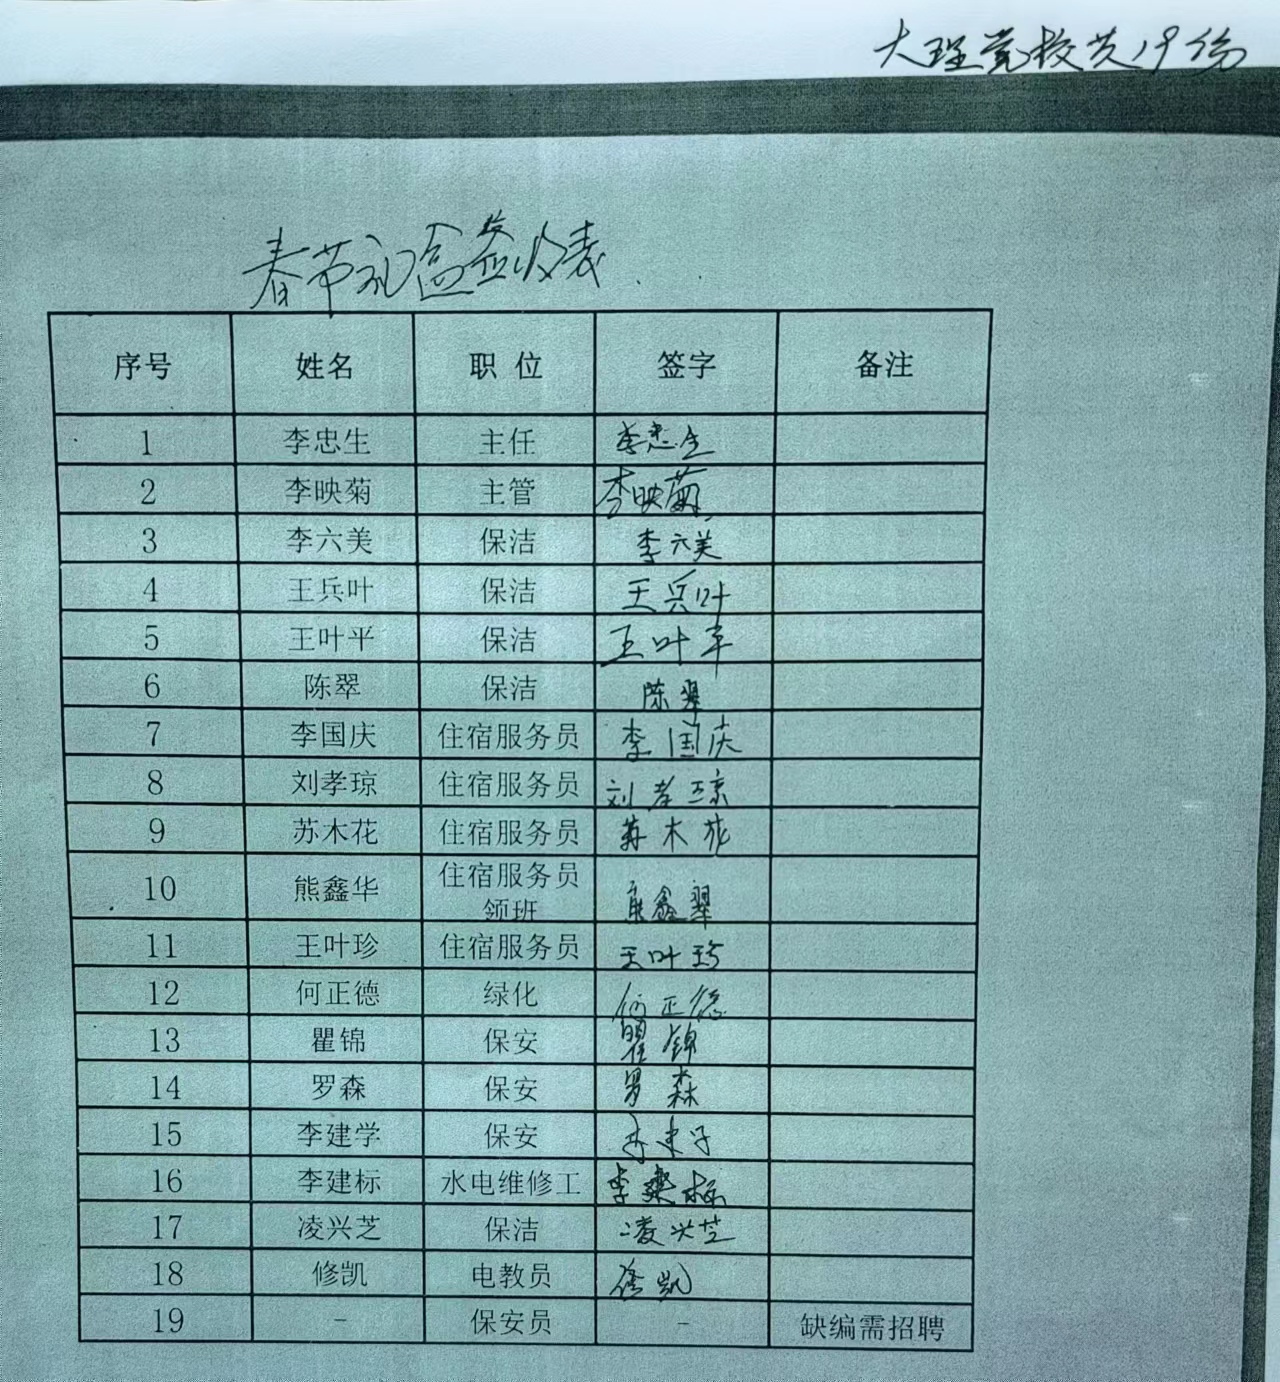 大理党校共19份
春节礼盒签收表
序号 姓名 职位 签字 备注
1 李忠生 主任 李忠生
2 李映菊 主管 李映菊
3 李六美 保洁 李六美
4 王兵叶 保洁 王兵叶
5 王叶平 保洁 王叶平
6 陈翠 保洁 陈翠
7 李国庆 住宿服务员 李国庆
8 刘孝琼 住宿服务员 刘孝琼
9 苏木花 住宿服务员 苏木花
10 熊鑫华 住宿服务员领班 熊鑫翠
11 王叶珍 住宿服务员 王叶珍
12 何正德 绿化 何正德
13 瞿锦 保安 瞿锦
14 罗森 保安 罗森
15 李建学 保安 李建学
16 李建标 水电维修工 李建标
17 凌兴芝 保洁 凌兴芝
18 修凯 电教员 修凯
19 - 保安员 - 缺编需招聘